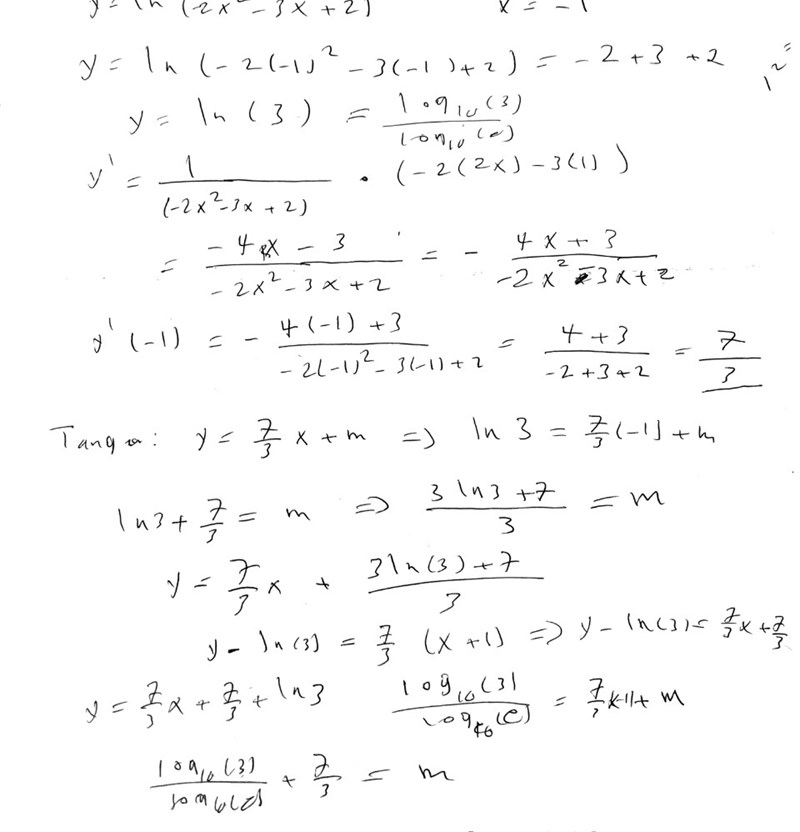 y = ln (-2x² - 3x + 2) x = -1
y = ln (-2(-1)² - 3(-1) + 2) = -2 + 3 + 2
y = ln (3) = log₁₀(3) / log₁₀(e)
y' = 1 / (-2x² - 3x + 2) · (-2(2x) - 3(1))
= (-4x - 3) / (-2x² - 3x + 2) = - (4x + 3) / (-2x² - 3x + 2)
y'(-1) = - (4(-1) + 3) / (-2(-1)² - 3(-1) + 2) = (4 + 3) / (-2 + 3 + 2) = 7/3
y = 7/3 x + m => ln 3 = 7/3 (-1) + m
ln 3 + 7/3 = m => (3 ln 3 + 7) / 3 = m
y = 7/3 x + (3 ln(3) + 7) / 3
y - ln(3) = 7/3 (x + 1) => y - ln(3) = 7/3 x + 7/3
y = 7/3 x + 7/3 + ln 3 log₁₀(3) / log₁₀(e) = 7/3 + m
log₁₀(3) / + 7/3 = m